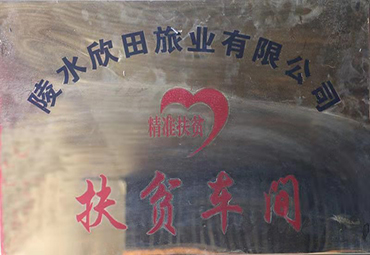 陵水欣田旅业有限公司
精准扶贫
扶贫车间